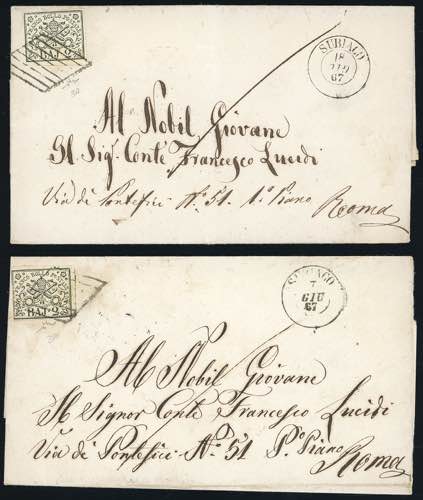 FRANCO BOLLO POSTALE
BAJ 2
SUBIACO
18
67
Al Nobil Giovane
Il Sig. Conte Francesco Lucidi
Via di Pontefici No. 51. 1o Piano
Roma
FRANCO BOLLO POSTALE
BAJ 2
SUBIACO
7
GIU
67
Al Nobil Giovane
Il Signor Conte Francesco Lucidi
Via di Pontefici No. 51 Po. Piano
Roma